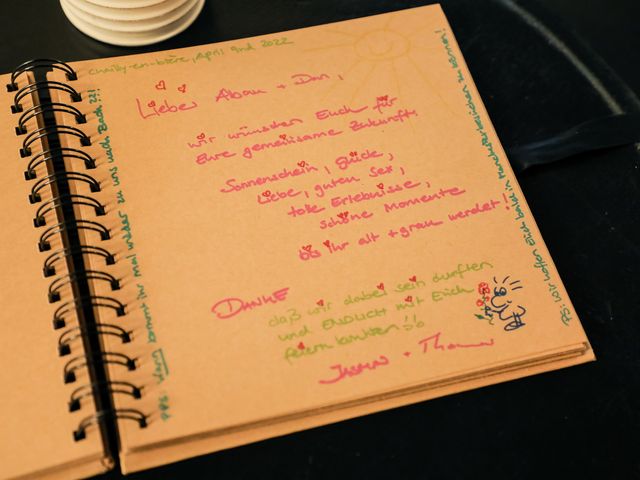 Chailly-en-bière, April 9nd 2022
Lieber Alban + Dan,
wir wünschen Euch für
Eure gemeinsame Zukunft:
Sonnenschein, Glück,
Liebe, guten Sex,
tolle Erlebnisse,
schöne Momente
bis ihr alt + grau werdet!
DANKE
daß wir dabei sein durften
und ENDLICH mit Euch
feiern konnten!!
+ Thomas
PS: wir hoffen Euch bald in
PPS: Wann kommt ihr mal wieder zu uns nach